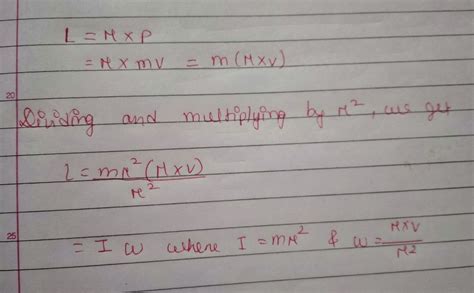 L = r × p
20 = r × mv = m (r × v)
Dividing and multiplying by r², we get
L = mr² (r × v) / r²
25 = I ω where I = mr² & ω = r × v / r²